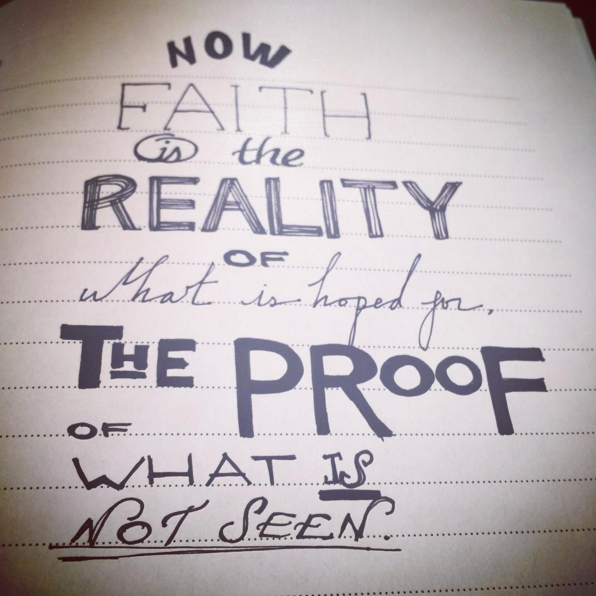 NOW
FAITH
is the
REALITY
OF
what is hoped for,
THE PROOF
OF
WHAT IS
NOT SEEN.